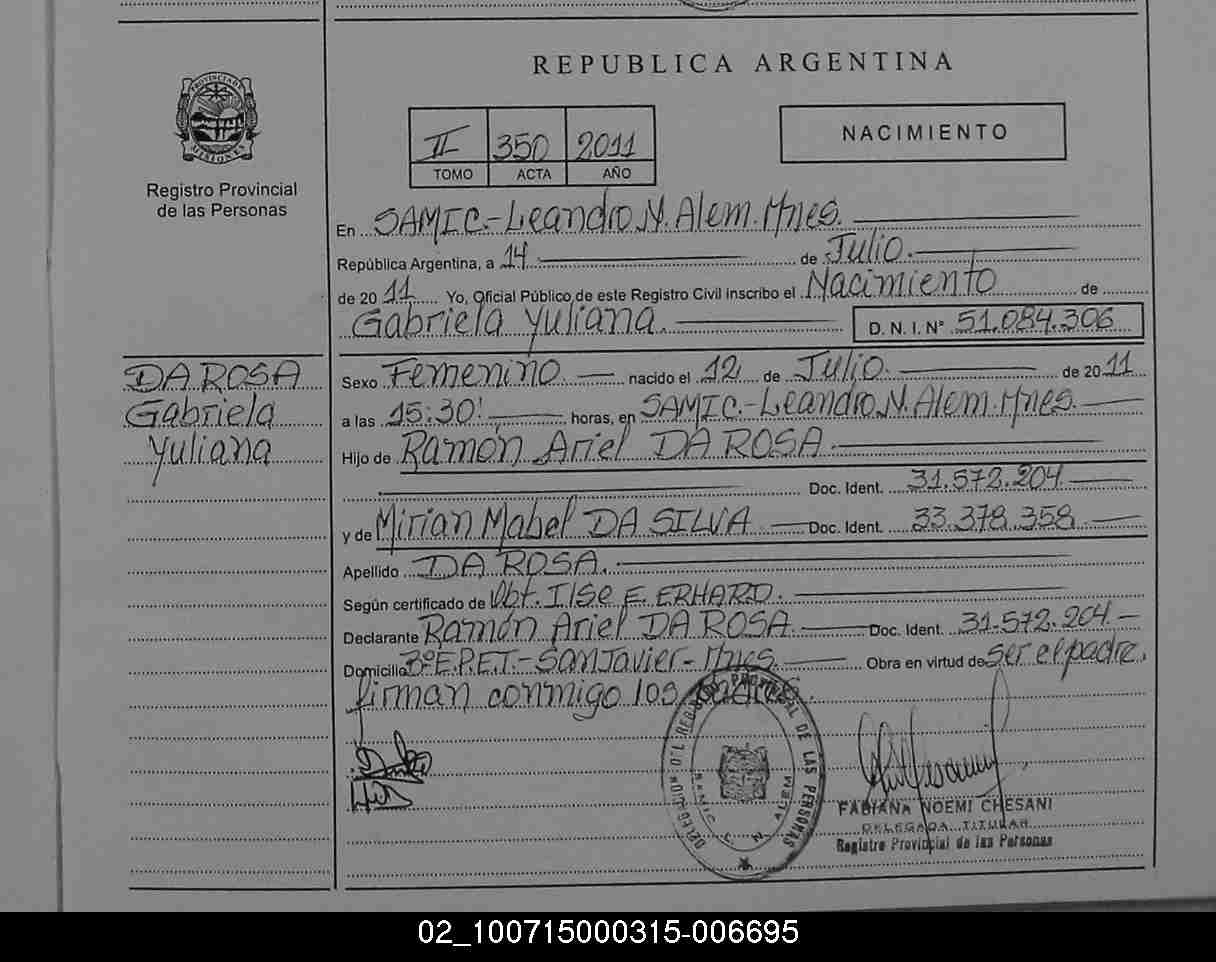 REPUBLICA ARGENTINA
PROVINCIA DE
MISIONES
Registro Provincial
de las Personas
II 350 2011
TOMO ACTA AÑO
NACIMIENTO
En SAMIC.-Leandro N. Alem. Mnes.
República Argentina, a 14 de Julio.
de 2011 Yo, Oficial Público de este Registro Civil inscribo el Nacimiento de
Gabriela Yuliana. D. N. I. Nº 51.084.306
DA ROSA
Gabriela
Yuliana
Sexo Femenino nacido el 12 de Julio. de 2011
a las 15:30! horas, en SAMIC.-Leandro N. Alem. Mnes.
Hijo de Ramón Ariel DA ROSA.
Doc. Ident. 31.572.204
y de Mirian Mabel DA SILVA Doc. Ident. 33.378.358
Apellido DA ROSA.
Según certificado de Obt. Ilse E. ERHARD.
Declarante Ramón Ariel DA ROSA. Doc. Ident. 31.572.204
Domicilio Bº E.P.E.T.-San Javier-Mnes. Obra en virtud de Ser el padre.
firman conmigo los padres.
DELEGACION DEL REGISTRO PROVINCIAL DE LAS PERSONAS
SAMIC L. N. ALEM
FABIANA NOEMI CHESANI
DELEGADA TITULAR
Registro Provincial de las Personas
02_100715000315-006695